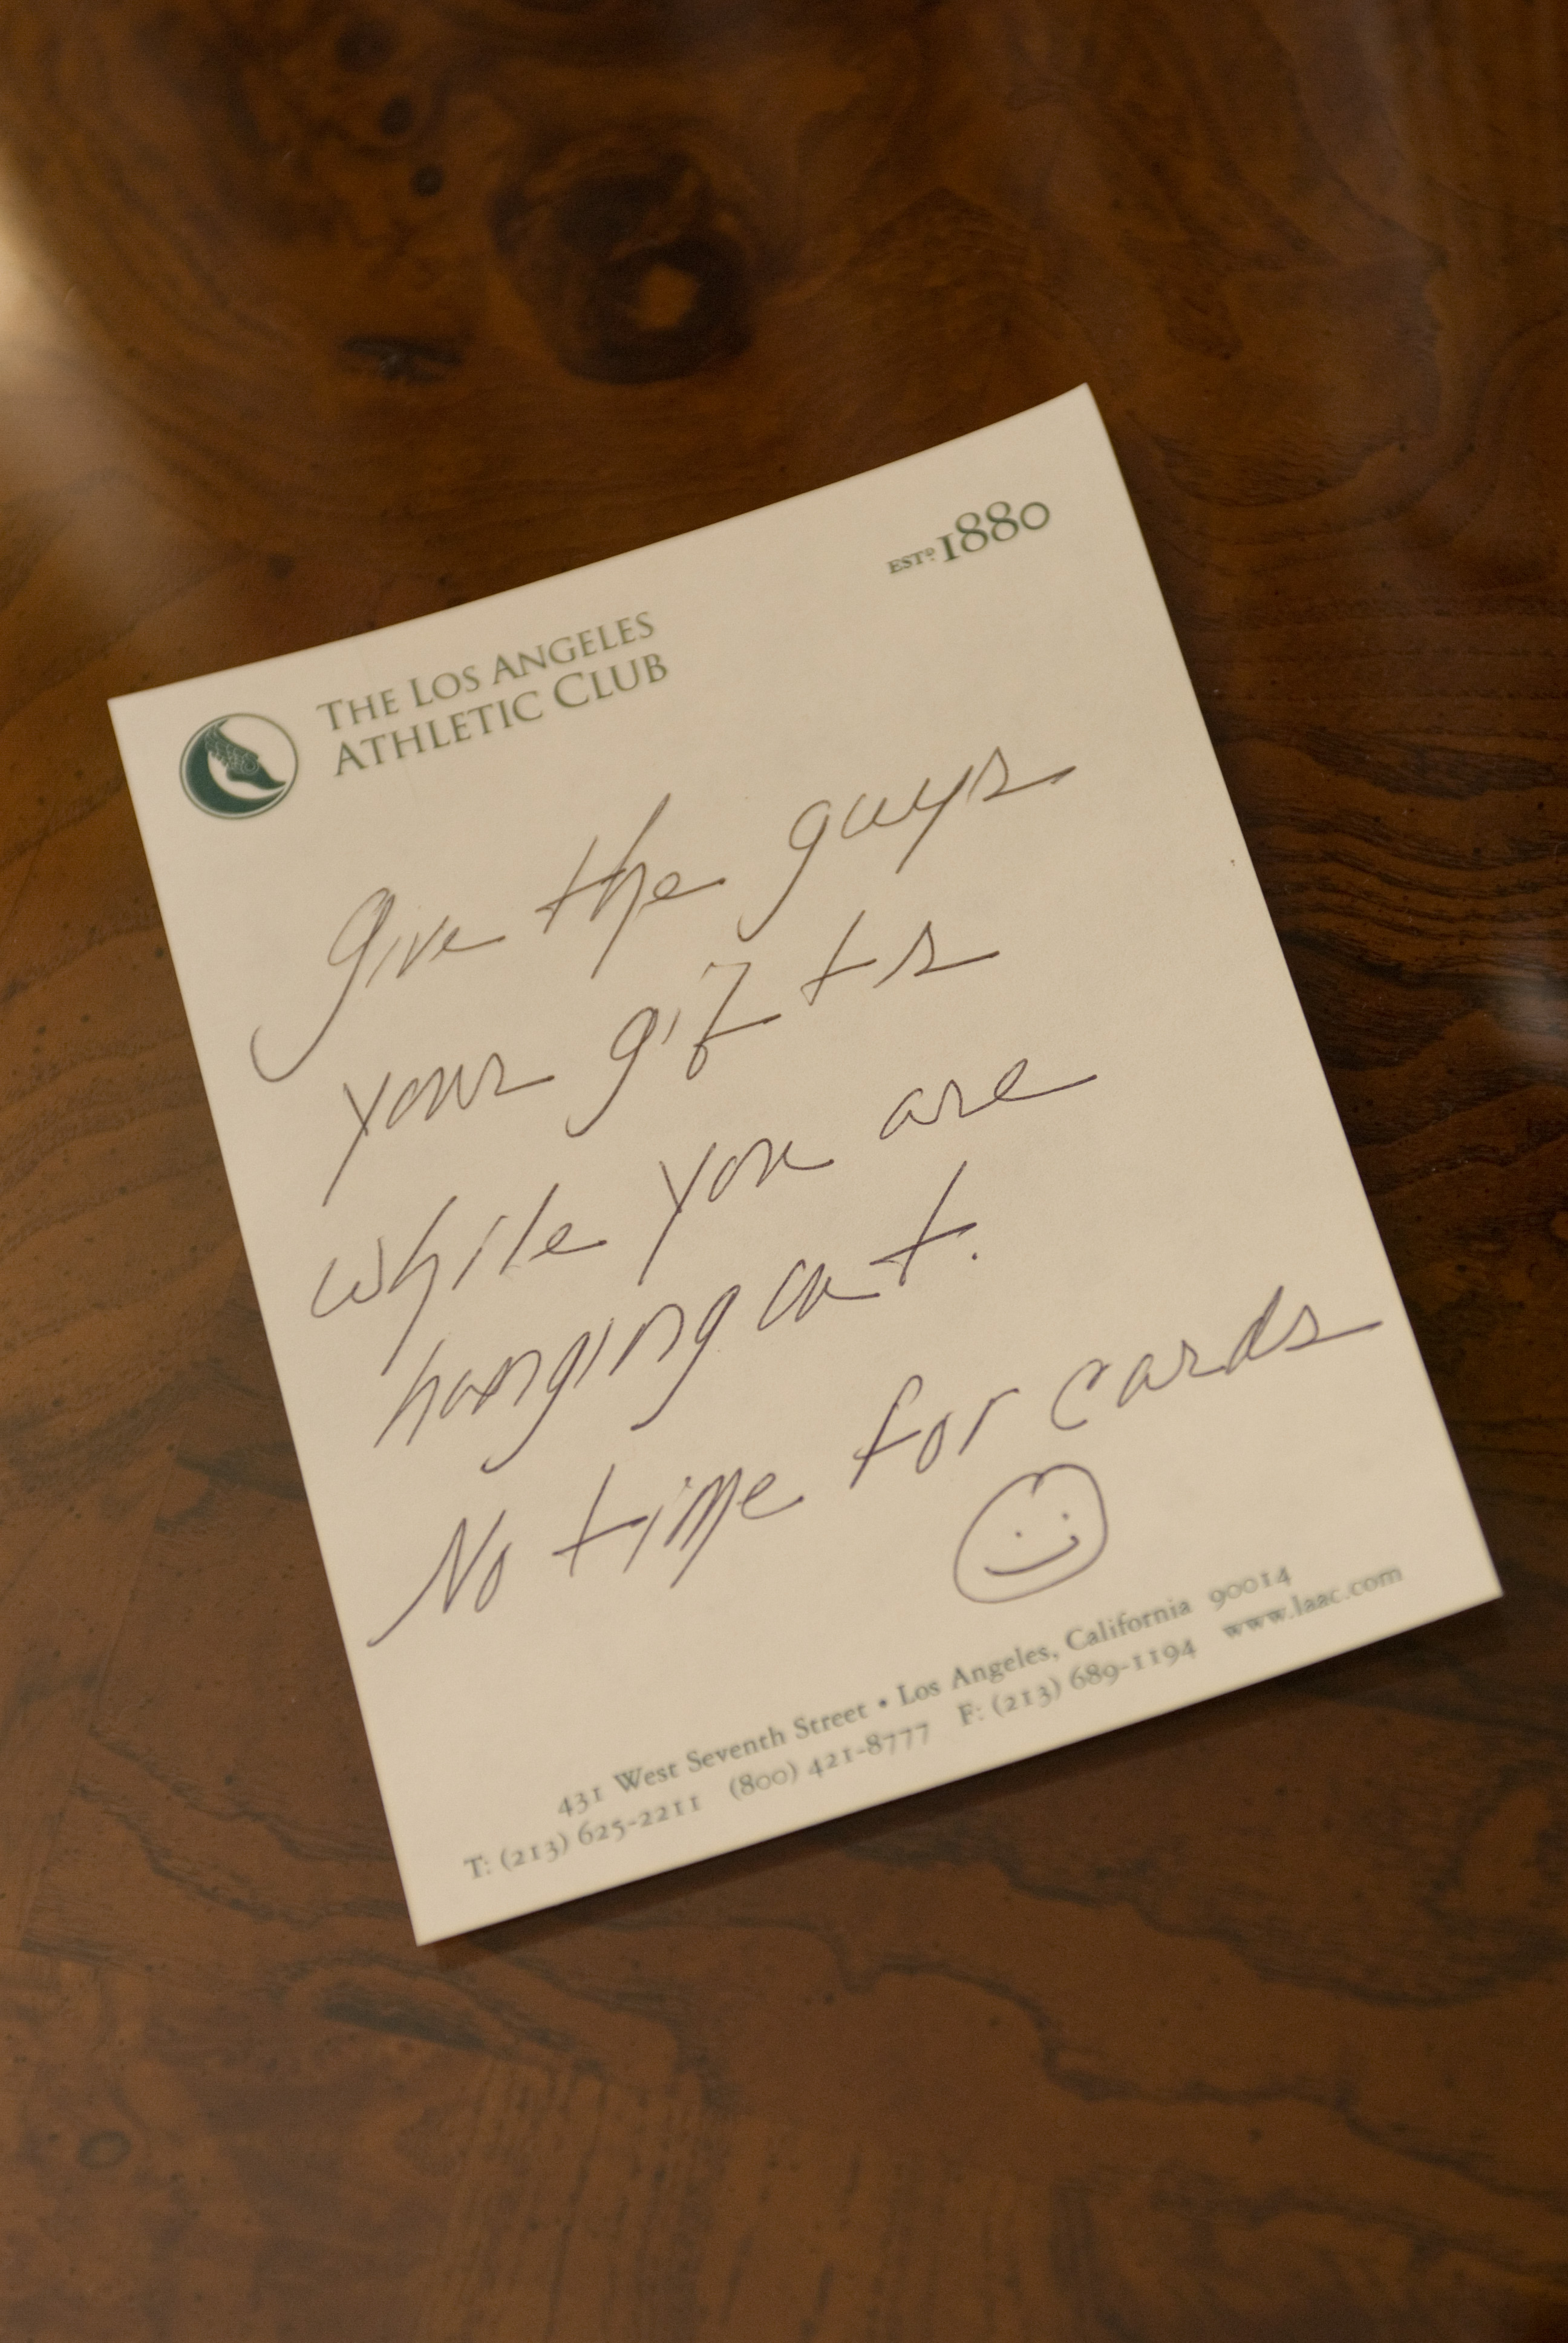 ESTD. 1880
THE LOS ANGELES
ATHLETIC CLUB
Give the guys
your gifts
while you are
hanging out.
No time for cards
431 West Seventh Street • Los Angeles, California 90014
T: (213) 625-2211 (800) 421-8777 F: (213) 689-1194 www.laac.com